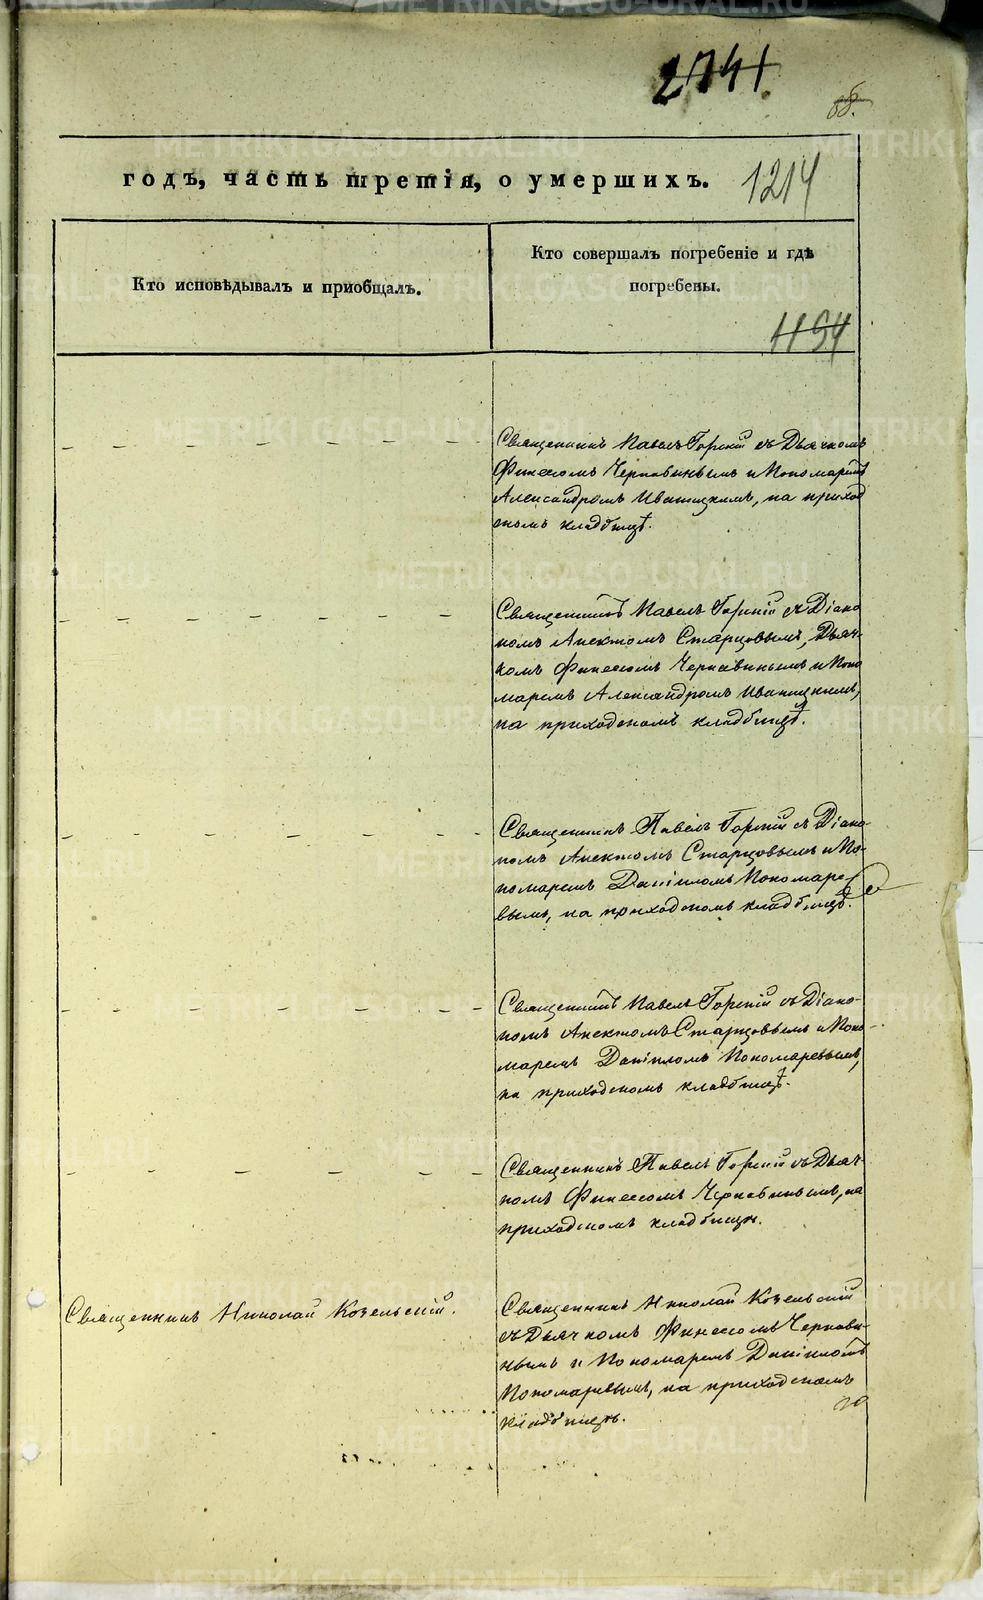 2741
1214
годъ, часть третія, о умершихъ.
Кто исповѣдывалъ и пріобщалъ.
Кто совершалъ погребеніе и гдѣ
погребены.
1194
Священникъ Павелъ Горскій съ Дьячкомъ
Финеесомъ Чернавинымъ и Пономаремъ
Александромъ Иваницкимъ, на приход
скомъ кладбищѣ.
Священникъ Павелъ Горскій съ Діако
номъ Анектомъ Старцовымъ, Дьяч-
комъ Финеесомъ Чернавинымъ и Поно
маремъ Александромъ Иваницкимъ,
на приходскомъ кладбищѣ.
Священникъ Павелъ Горскій съ Діако-
номъ Анектомъ Старцовымъ и По-
номаремъ Даніиломъ Пономаре
вымъ, на приходскомъ кладбищѣ.
Священникъ Павелъ Горскій съ Діако-
номъ Анектомъ Старцовымъ и Поно-
маремъ Даніиломъ Пономаревымъ,
на приходскомъ кладбищѣ.
Священникъ Павелъ Горскій съ Дьяч-
комъ Финеесомъ Чернавинымъ, на
приходскомъ кладбищѣ.
Священникъ Николай Козельскій.
Священникъ Николай Козельскій
съ Дьячкомъ Финеесомъ Чернави-
нымъ и Пономаремъ Даніиломъ
Пономаревымъ, на приходскомъ
кладбищѣ.
METRIKI.GASO-URAL.RU